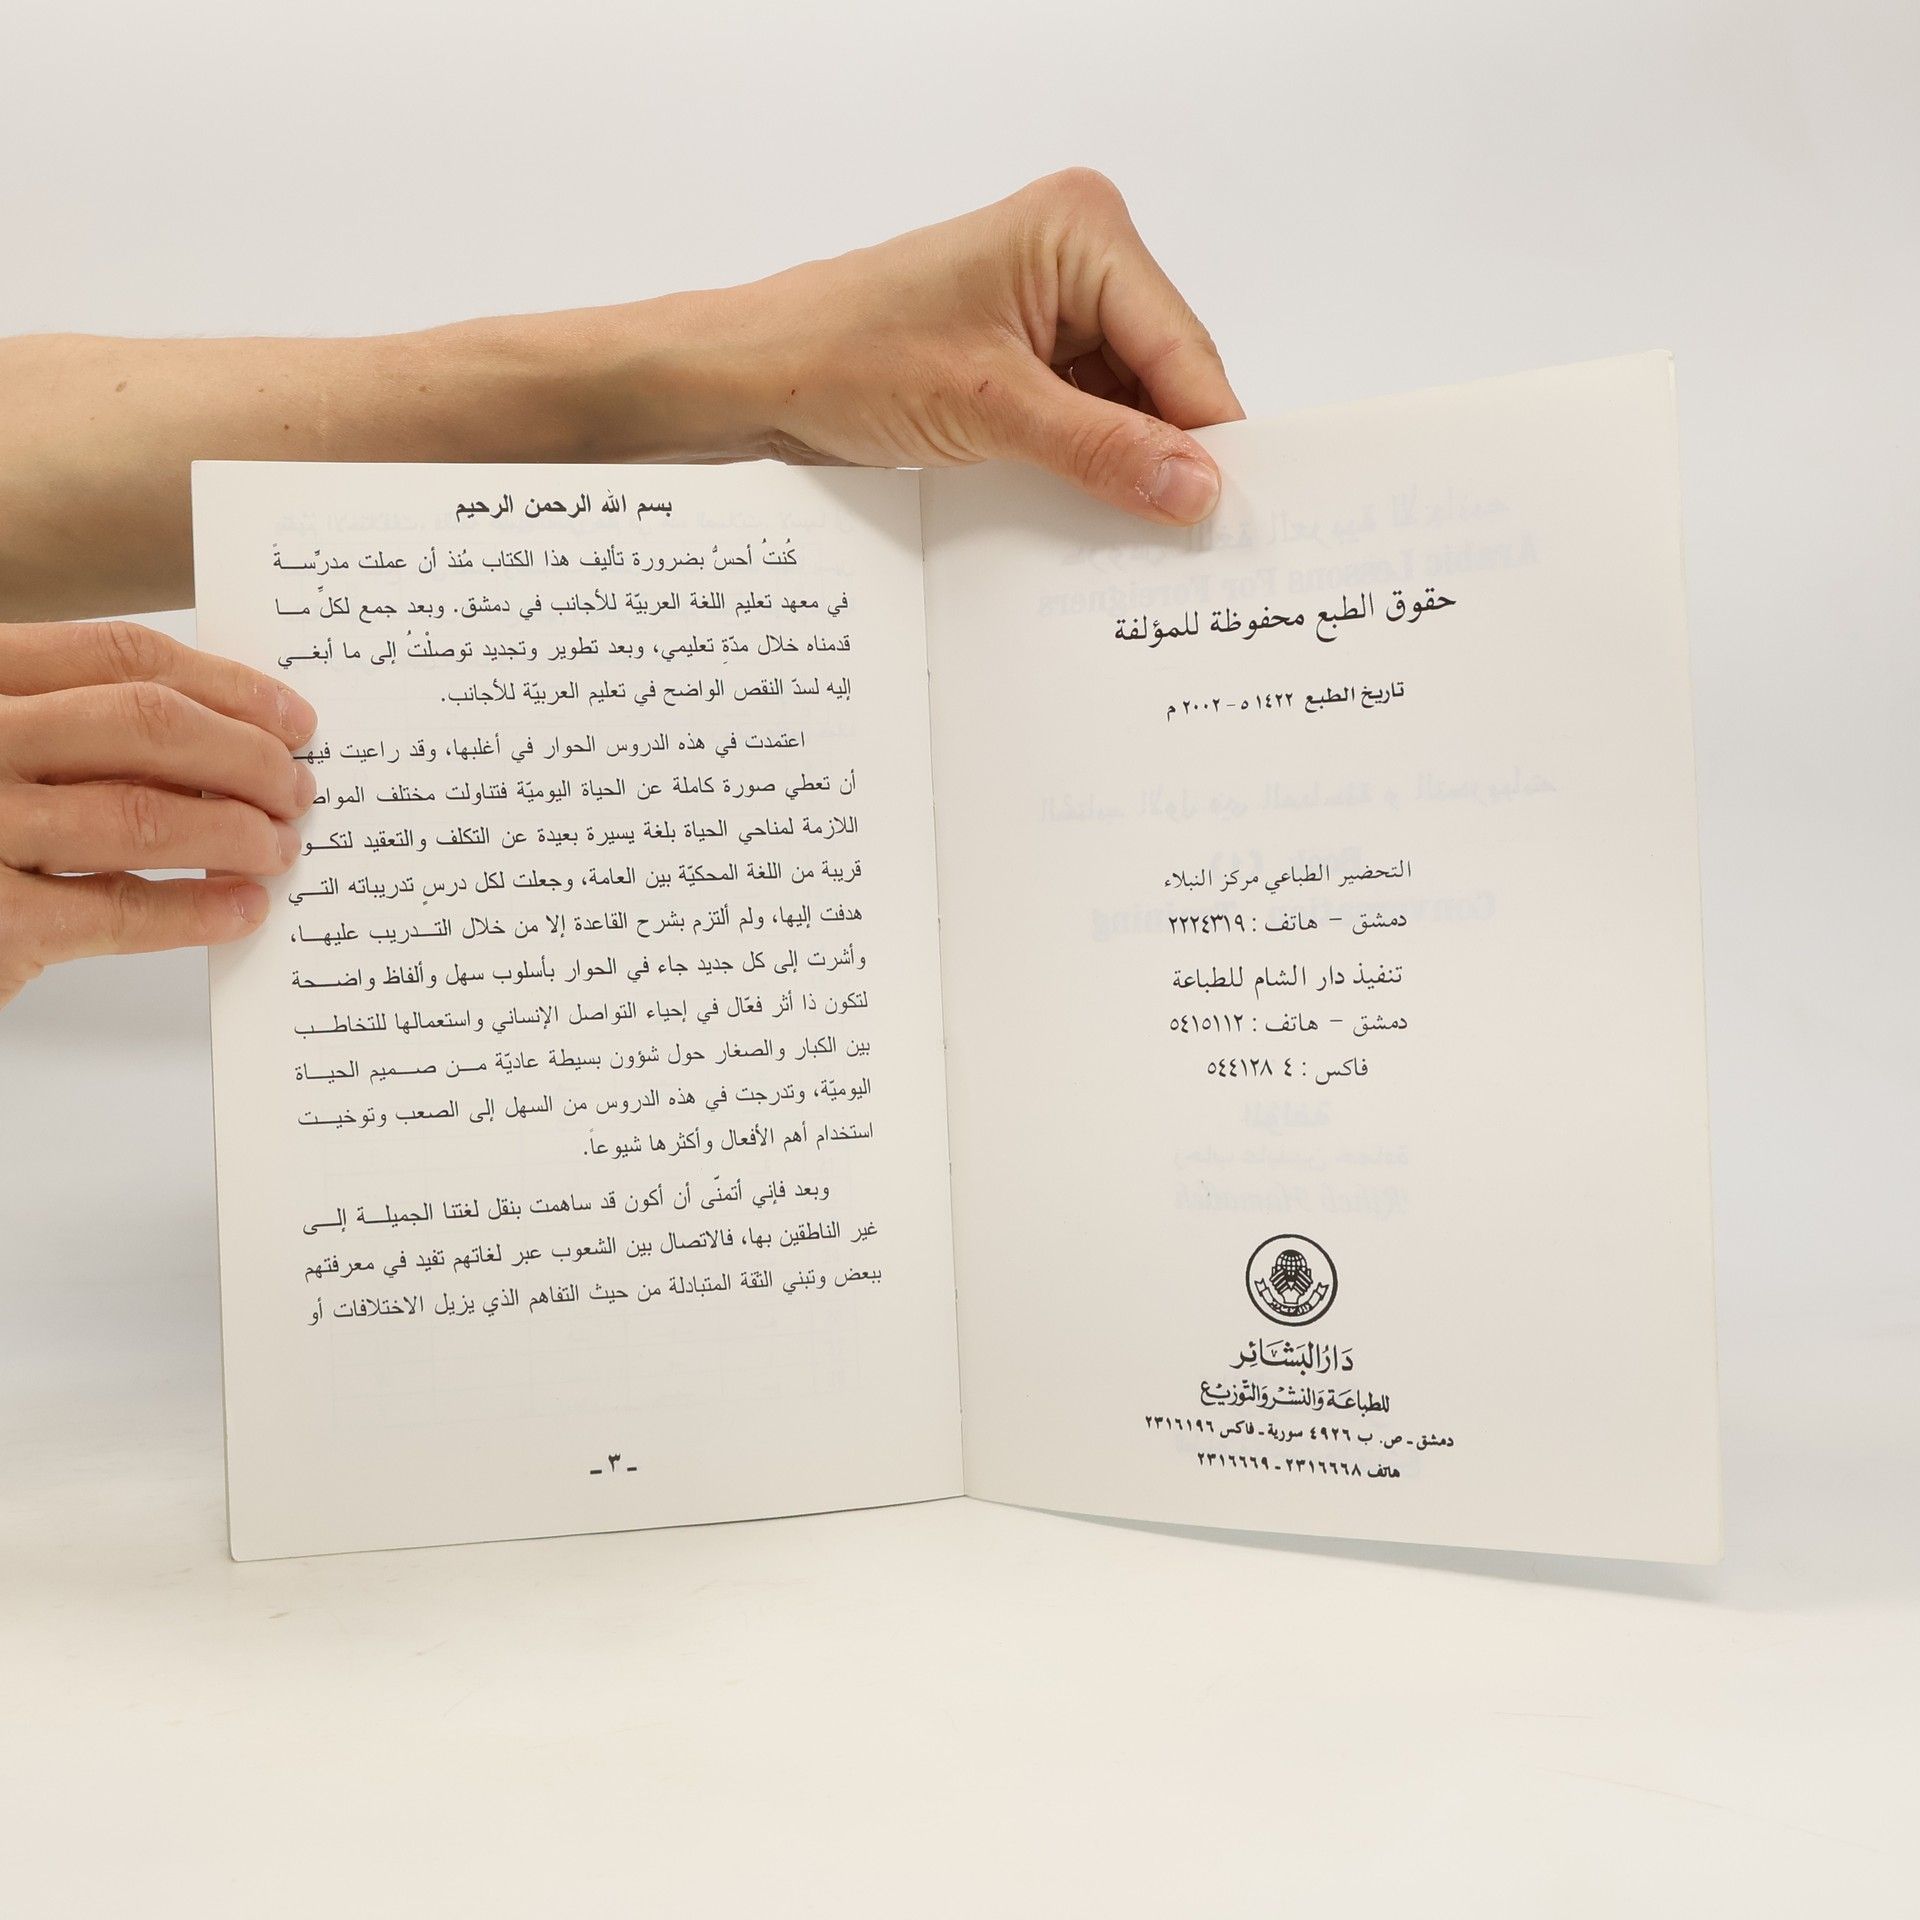 حقوق الطبع محفوظة للمؤلفة
تاريخ الطبع ١٤٢٢ ه - ٢٠٠٢ م
التحضير الطباعي مركز النبلاء
دمشق – هاتف : ٢٢٢٤٣١٩
تنفيذ دار الشام للطباعة
دمشق – هاتف : ٥٤١٥١١٢
فاكس : ٤ ٥٤٤١٢٨
دَارُ البَشَائِر
للطباعَة وَالنشْر وَالتَّوزيْع
دمشق - ص. ب ٤٩٢٦ سورية - فاكس ٢٣١٦١٩٦
هاتف ٢٣١٦٦٦٨ - ٢٣١٦٦٦٩
بسم الله الرحمن الرحيم
كُنتُ أحسُّ بضرورة تأليف هذا الكتاب مُنذ أن عملت مدرِّسةً
في معهد تعليم اللغة العربيّة للأجانب في دمشق. وبعد جمع لكلِّ ما
قدمناه خلال مدّةِ تعليمي، وبعد تطوير وتجديد توصلْتُ إلى ما أبغي
إليه لسدّ النقص الواضح في تعليم العربيّة للأجانب.
اعتمدت في هذه الدروس الحوار في أغلبها، وقد راعيت فيها
أن تعطي صورة كاملة عن الحياة اليوميّة فتناولت مختلف
اللازمة لمناحي الحياة بلغة يسيرة بعيدة عن التكلف والتعقيد
قريبة من اللغة المحكيّة بين العامة، وجعلت لكل درسٍ تدريباته التي
هدفت إليها، ولم ألتزم بشرح القاعدة إلا من خلال التدريب عليها،
وأشرت إلى كل جديد جاء في الحوار بأسلوب سهل وألفاظ واضحة
لتكون ذا أثر فعّال في إحياء التواصل الإنساني واستعمالها للتخاطب
بين الكبار والصغار حول شؤون بسيطة عاديّة من صميم الحياة
اليوميّة، وتدرجت في هذه الدروس من السهل إلى الصعب وتوخيت
استخدام أهم الأفعال وأكثرها شيوعاً.
وبعد فإني أتمنّى أن أكون قد ساهمت بنقل لغتنا الجميلة إلى
غير الناطقين بها، فالاتصال بين الشعوب عبر لغاتهم تفيد في معرفتهم
ببعض وتبني الثقة المتبادلة من حيث التفاهم الذي يزيل الاختلافات أو
- ٣ -